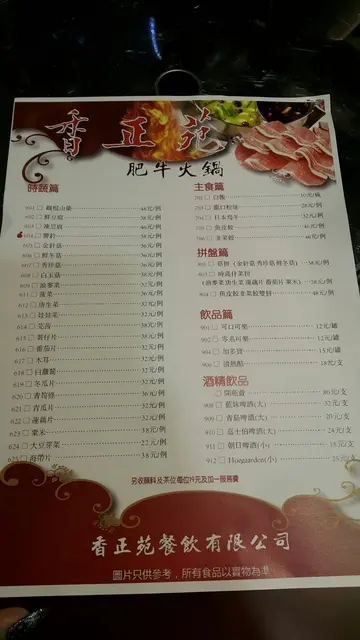 香正苑
肥牛火鍋
時蔬篇
601 鐵棍山藥 46元/例
602 鮮豆腐 36元/例
603 凍豆腐 36元/例
604
605 金針菇 36元/例
606 鮮冬菇 36元/例
607 秀珍菇 36元/例
608 白玉菇 38元/例
609 油麥菜 32元/例
611 菠菜 36元/例
612 唐生菜 32元/例
613 娃娃菜 32元/例
614 芫茜 38元/例
615 薯仔片 38元/例
616 番茄片 32元/例
617 木耳 32元/例
618 白蘿蔔 32元/例
619 冬瓜片 32元/例
620 青筍條 36元/例
621 青瓜片 32元/例
622 蓮藕片 32元/例
623 粟米 38元/例
624 大豆芽菜 22元/例
625 海帶片 38元/例
主食篇
701 白飯 10元/碗
28元/例
704 日本烏冬 32元/例
魚皮餃 40元/例
韭菜餃 40元/例
拼盤篇
801 菇拼(金針菇 秀珍菇 鮮冬菇) 58元/例
803 時蔬什菜拼
(油麥菜 唐生菜 蓮藕片 番茄片 粟米) 58元/例
804 魚皮餃韭菜餃雙拼 48元/例
飲品篇
901 可口可樂 12元/罐
902 零系可樂 12元/罐
904 加多寶 15元/罐
906 清熱酷 18元/支
酒精飲品
開瓶費 80元/支
908 藍妹啤酒(大) 32元/支
909 青島啤酒(大) 20元/支
910 嘉士伯啤酒(大) 24元/支
911 朝日啤酒(小)
912 Hoegaarden(小)
另收醬料及茶位每位19元及加一服務費
香正苑餐飲有限公司
圖片只供參考，所有食品以實物為準